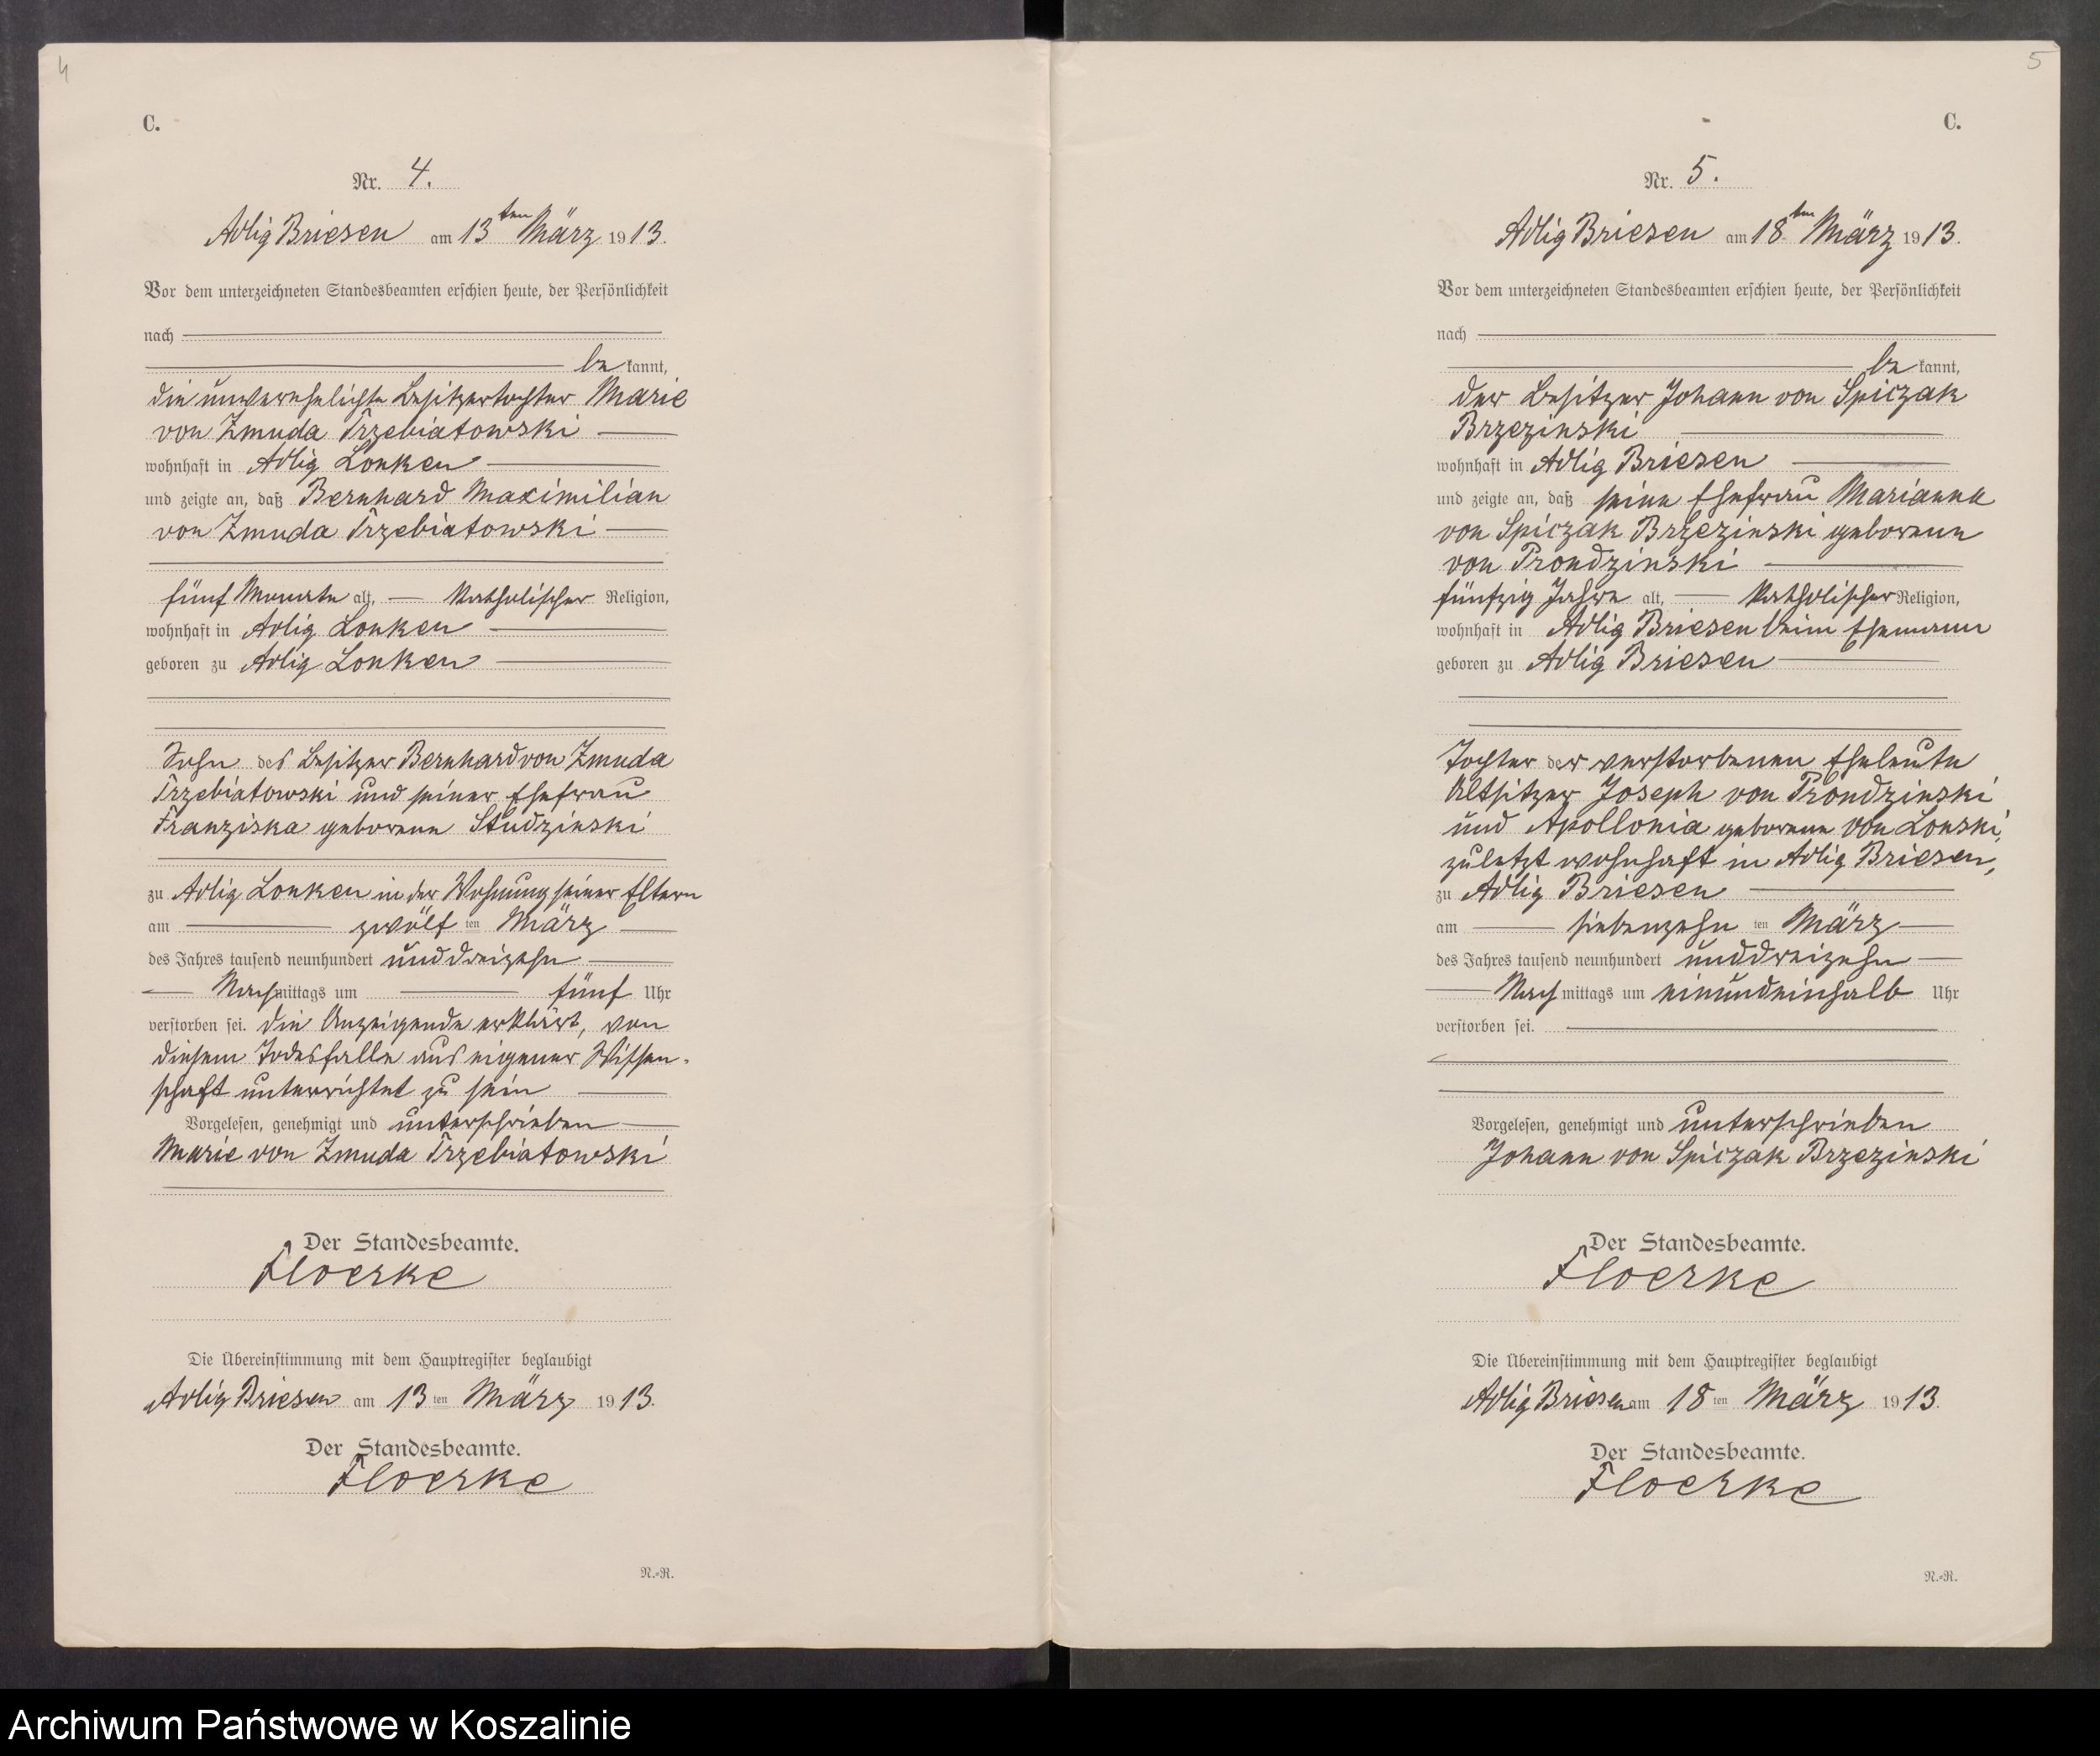 4
C.
Nr. 4.
Adlig Briesen am 13ten März 1913.
Vor dem unterzeichneten Standesbeamten erschien heute, der Persönlichkeit
nach
be kannt,
die unverehelichte Besitzertochter Marie
von Zmuda Trzebiatowski
wohnhaft in Adlig Lonken
und zeigte an, daß Bernhard Maximilian
von Zmuda Trzebiatowski
fünf Monate alt, katholischer Religion,
wohnhaft in Adlig Lonken
geboren zu Adlig Lonken
Sohn des Besitzer Bernhard von Zmuda
Trzebiatowski und seiner Ehefrau
Franziska geborene Studzinski
zu Adlig Lonken in der Wohnung seiner Eltern
am zwölf ten März
des Jahres tausend neunhundert und dreizehn
Nachmittags um fünf Uhr
verstorben sei. Die Anzeigende erklärt, von
diesem Todesfalle aus eigener Wissen-
schaft unterrichtet zu sein
Vorgelesen, genehmigt und unterschrieben
Marie von Zmuda Trzebiatowski
Der Standesbeamte.
Floerke
Die Übereinstimmung mit dem Hauptregister beglaubigt
Adlig Briesen am 13 ten März 1913.
Der Standesbeamte.
Floerke
N.-R.
5
C.
Nr. 5.
Adlig Briesen am 18ten März 1913.
Vor dem unterzeichneten Standesbeamten erschien heute, der Persönlichkeit
nach
be kannt,
der Besitzer Johann von Spiczak
Brzezinski
wohnhaft in Adlig Briesen
und zeigte an, daß seine Ehefrau Marianna
von Spiczak Brzezinski geborene
von Prondzinski
fünfzig Jahre alt, katholischer Religion,
wohnhaft in Adlig Briesen beim Ehemann
geboren zu Adlig Briesen
Tochter der verstorbenen Eheleute
Altsitzer Joseph von Prondzinski
und Apollonia geborene von Lonski,
zuletzt wohnhaft in Adlig Briesen,
zu Adlig Briesen
am siebenzehn ten März
des Jahres tausend neunhundert und dreizehn
Nachmittags um einundeinhalb Uhr
verstorben sei.
Vorgelesen, genehmigt und unterschrieben
Johann von Spiczak Brzezinski
Der Standesbeamte.
Floerke
Die Übereinstimmung mit dem Hauptregister beglaubigt
Adlig Briesen am 18 ten März 1913.
Der Standesbeamte.
Floerke
N.-R.
Archiwum Państwowe w Koszalinie